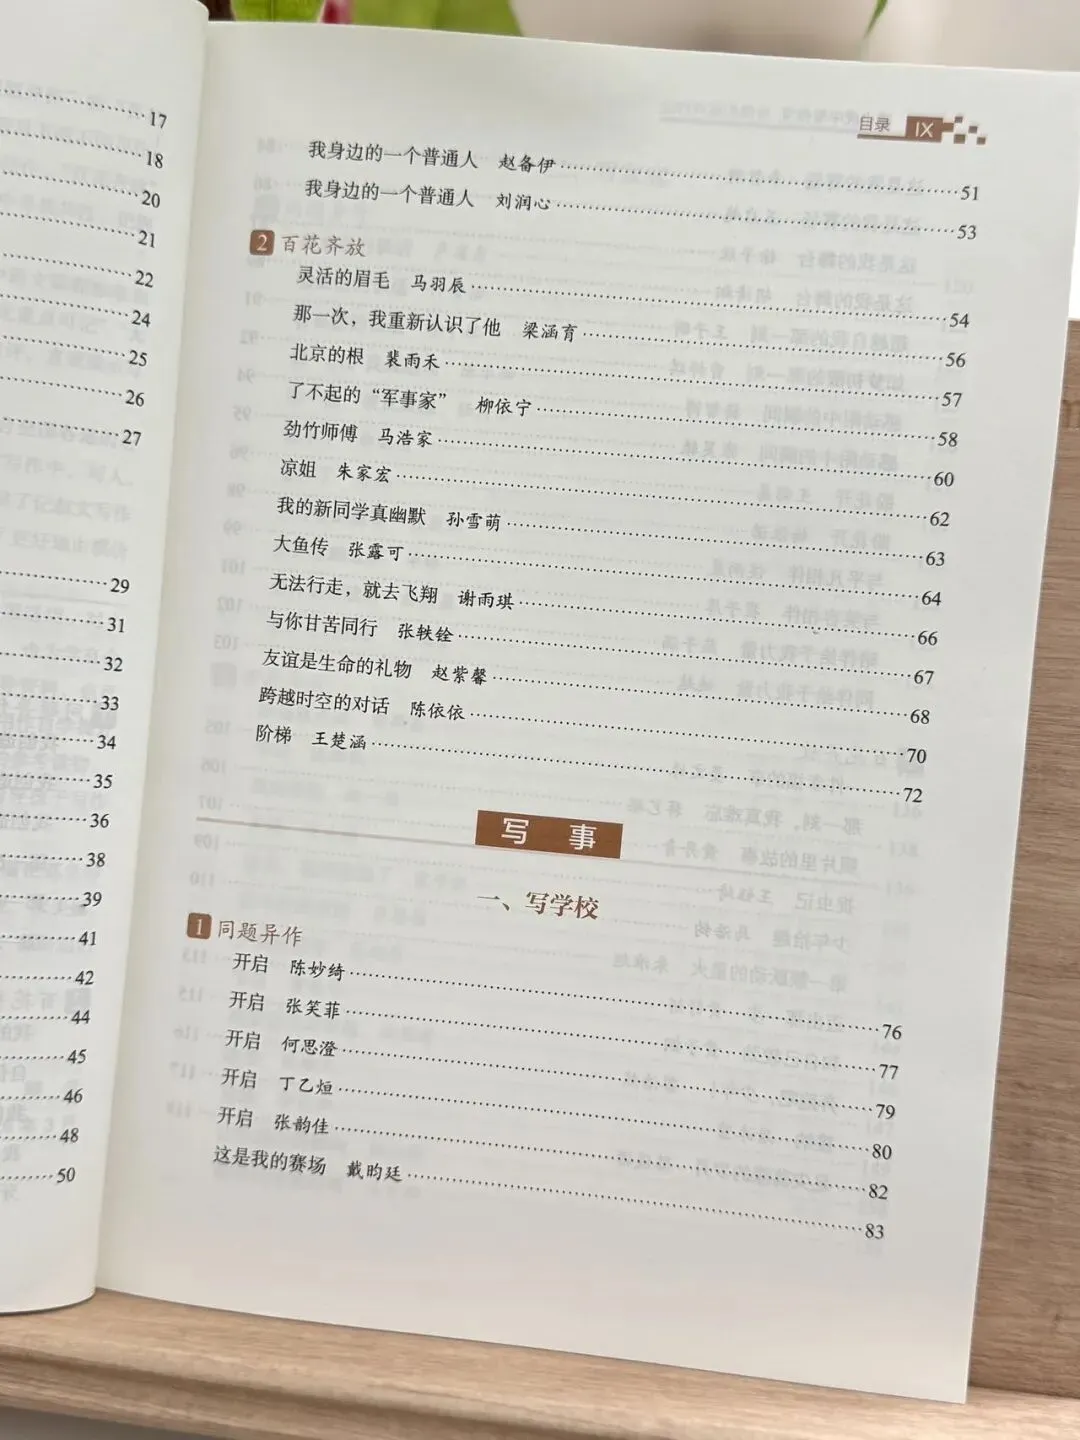 17
18
20
21
22
24
25
26
27
29
31
32
33
34
35
36
38
39
41
42
44
45
46
48
50
目录 IX
我身边的一个普通人 赵备伊 51
我身边的一个普通人 刘润心 53
2 百花齐放
灵活的眉毛 马羽辰 54
那一次，我重新认识了他 梁涵育 56
北京的根 裴雨禾 57
了不起的“军事家” 柳依宁 58
劲竹师傅 马浩家 60
凉姐 朱家宏 62
我的新同学真幽默 孙雪萌 63
大鱼传 张露可 64
无法行走，就去飞翔 谢雨琪 66
与你甘苦同行 张轶铨 67
友谊是生命的礼物 赵紫馨 68
跨越时空的对话 陈依依 70
阶梯 王楚涵 72
写 事
一、写学校
1 同题异作
开启 陈妙绮 76
开启 张笑菲 77
开启 何思澄 79
开启 丁乙烜 80
开启 张韵佳 82
这是我的赛场 戴昀廷 83